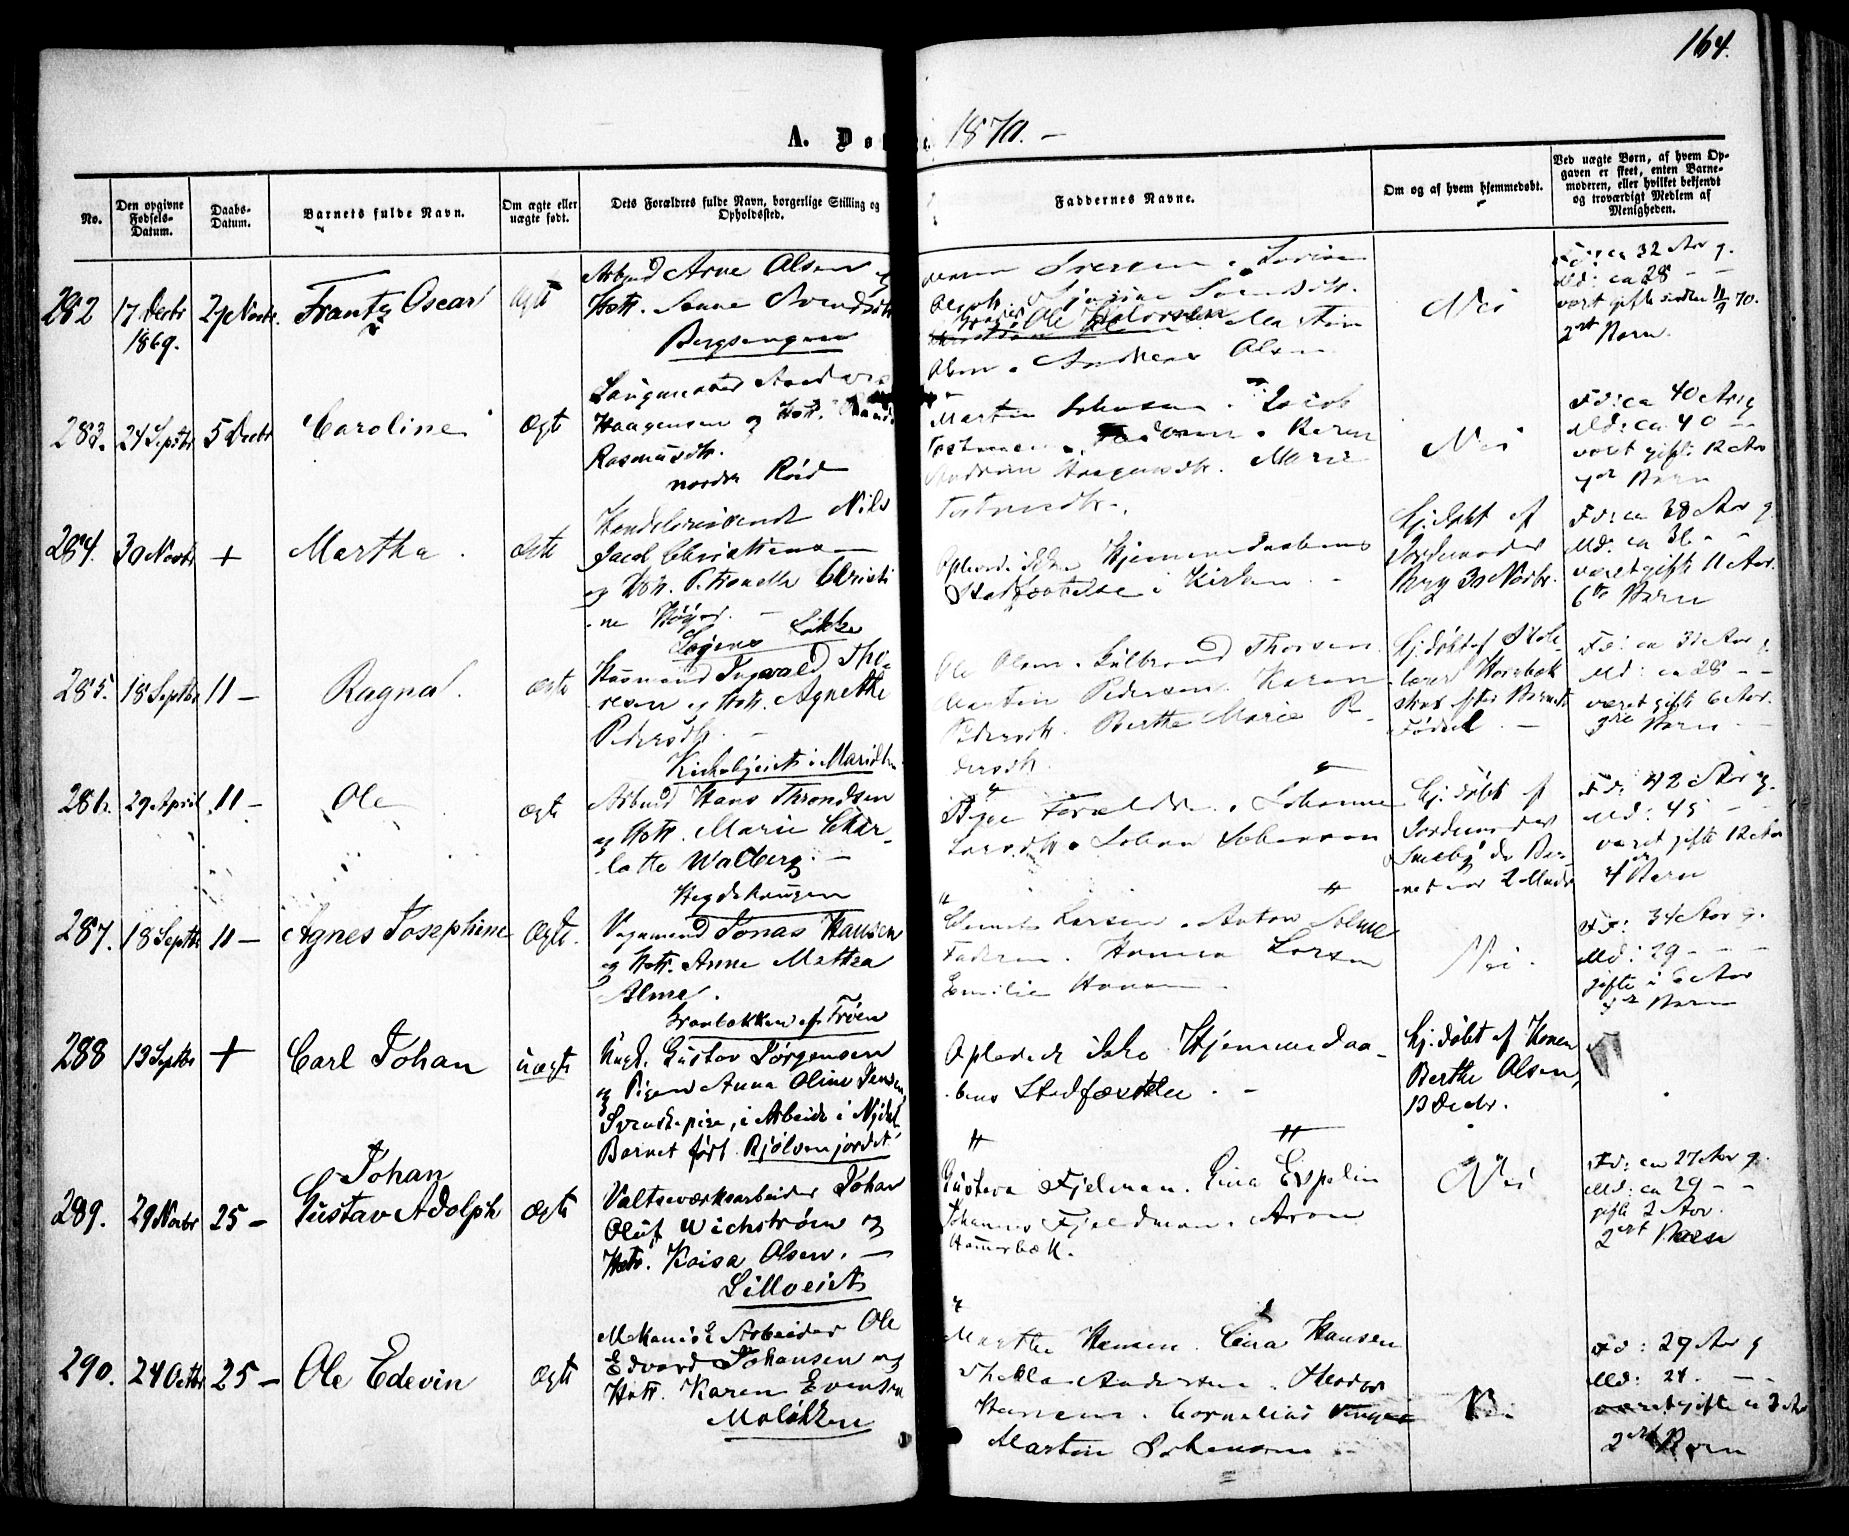 164.
A. Døbte 1870. –
No.
Den opgivne Fødsels-Datum.
Daabs-Datum.
Barnets fulde Navn.
Om ægte eller uægte født.
Dets Forældres fulde Navn, borgerlige Stilling og Opholdssted.
Faddernes Navne.
Om og af hvem hjemmedøbt.
Ved uægte Børn, af hvem Opgaven er skeet, enten Barnemoderen, eller hvilket bekjendt og troværdigt Medlem af Menigheden.
282
17 Decbr 1869.
27 Novbr.
Frantz Oscar
Ægte
Arbmd Arne Olsen
Hstr. Anne Svendsdtr
Bergsengen
Ole Halvorsen. Martin
Olsen. Andreas Olsen
Nei
Fd: ca 32 Aar g.
Md: ca 28 – –
vært gifte siden 11/9 70.
2det Barn.
283.
24 Septbr
5 Decbr
Caroline
Ægte
Laugmand
Haagensen og Hstr.
Rasmusdtr.
nordre Røid
Martin Johnsen. Jacob
Karen
Haagensdtr. Marie
Nei
Fd: ca 40 Aar g
Md: ca 40 – –
vært gifte 12 Aar
Barn
284.
30 Novbr
+
Martha.
Ægte
Handelsreisende Nils
Jacob Christensen
og Hstr. Petronelle Christi-
ne
Løkke
Oplevede ikke Hjemmedaabens
Stadfæstelse i Kirken. –
Hj.døbt af
Jordemoder
Berg 30 Novbr.
Fd: ca 38 Aar g
Md: ca 36 – –
været gifte 11 Aar.
6te Barn
285.
18 Septbr
11 –
Ragna.
Ægte
Huusmand Ingvald Tho-
resen og Hstr. Agnethe
Pedersdtr. –
Kirkebjerget i Maridalen
Ole Olsen. Gulbrand Thorsen
Martin Pedersen. Karen
Pedersdtr. Berthe Marie Pe-
dersdtr.
Hj.døbt af Skole-
lærer
strax efter Barnets
Fødsel. –
Fd: ca 31 Aar g.
Md: ca 28 – –
været gifte 6 Aar.
3die Barn –
286.
29 April
11 –
Ole
ægte
Arbmd Hans Throndsen
og Hstr. Marie Char-
lotte Walberg. –
Hegdehaugen
Begge Forældre. Johanne
Larsdtr. Johan Johansen
Hj.døbt af
Jordemoder
da Bar-
net var 2 Mndr
Fd: 42 Aar g.
Md: 45 –
været gifte 12 Aar
4de Barn
287.
18 Septbr
11 –
Agnes Josephine
Ægte.
Vognmand Jonas Hansen
og Hstr. Anne Mathea
Alme.
Granbakken af Frøen
Larsen. Anton Alme
Faderen. Hanna Larsen
Emilie Hansen.
Nei.
Fd: 34 Aar g.
Md: 29 – –
gifte i 6 Aar
Barn
288
13 Septbr
+
Carl Johan
uægte
Ungk. Gustav Jørgensen
og Pigen Anna Oline Jensen,
Svenskepige, i Arbeide i Nydal
Barnet født Kjølsenjordet
Oplevede ikke Hjemmedaa-
bens Stadfæstelse. –
Hj.døbt af Konen
Berthe Olsen,
13 Decbr.
289.
29 Novbr
25 –
Johan
Gustav Adolph
Ægte
Valtseværksarbeider Johan
Oluf Wichstrøm og
Hstr. Kaisa Olsen. –
Lilloeiet
Gustava Fjelman. Lina Espelin
Johannes Fjeldman. Aron
Hammerbæk.
Nei
Fd: ca 27 Aar g.
Md: ca 29 – –
gifte 2 Aar.
2det Barn
290.
24 Octbr
25 –
Ole Edevin
Ægte
Mekanisk Arbeider Ole
Edvard Johansen og
Hstr. Karen Evensen
Moløkken
Marthe Hansen. Lina Hansen
Thekla Andersen. Theodor
Hansen. Cornelius
Martin Johansen –
Nei
Fd: 29 Aar g
Md: 24. – –
været gifte i 3 Aar
2det Barn